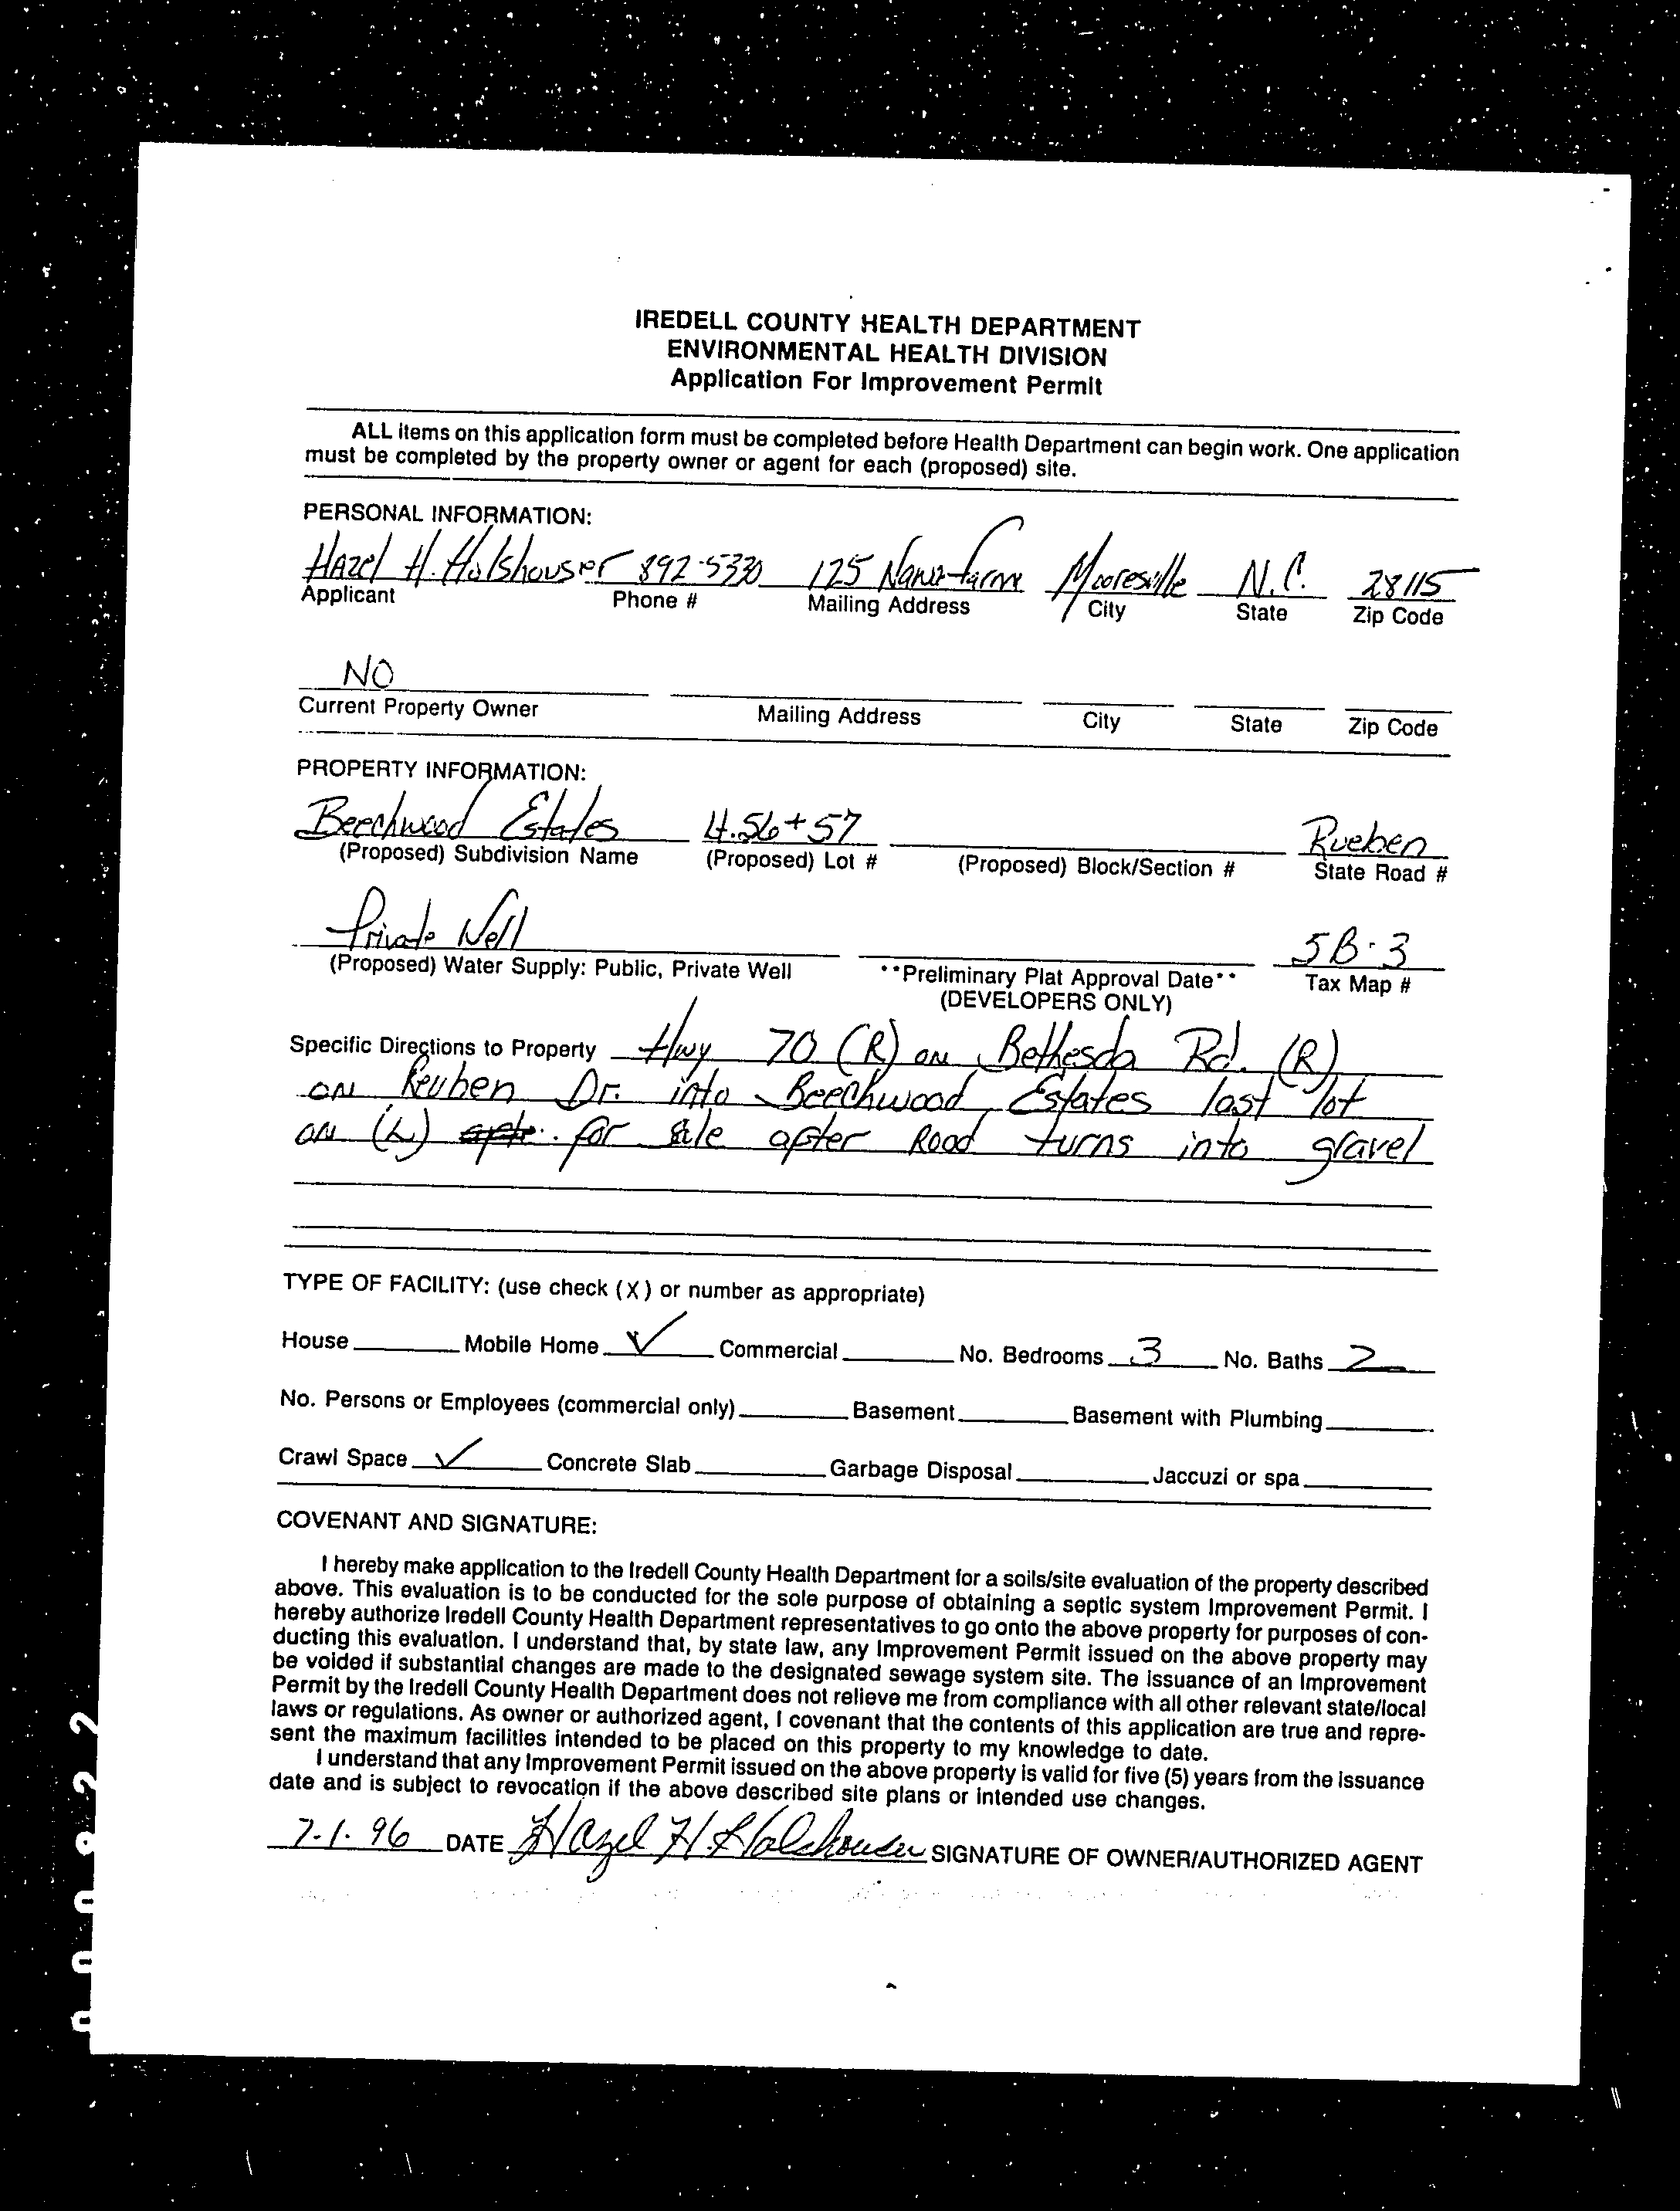 IREDELL COUNTY HEALTH DEPARTMENT
ENVIRONMENTAL HEALTH DIVISION
Application For Improvement Permit
ALL items on this application form must be completed before Health Department can begin work. One application
must be completed by the property owner or agent for each (proposed) site.
PERSONAL INFORMATION:
HAzel H. Holshouser 892-5330 125 farm Mooresville N.C. 28115
Applicant Phone # Mailing Address City State Zip Code
NO
Current Property Owner Mailing Address City State Zip Code
PROPERTY INFORMATION:
Beechwood Estates 4.56+57 Rueben
(Proposed) Subdivision Name (Proposed) Lot # (Proposed) Block/Section # State Road #
Private Well 5B-3
(Proposed) Water Supply: Public, Private Well **Preliminary Plat Approval Date** Tax Map #
(DEVELOPERS ONLY)
Specific Directions to Property Hwy 70 (R) on Bethesda Rd. (R)
on Reuben Dr. into Beechwood Estates last lot
on (L) for sale after Road turns into gravel
TYPE OF FACILITY: (use check (X) or number as appropriate)
House Mobile Home ✓ Commercial No. Bedrooms 3 No. Baths 2
No. Persons or Employees (commercial only) Basement Basement with Plumbing
Crawl Space ✓ Concrete Slab Garbage Disposal Jaccuzi or spa
COVENANT AND SIGNATURE:
I hereby make application to the Iredell County Health Department for a soils/site evaluation of the property described
above. This evaluation is to be conducted for the sole purpose of obtaining a septic system Improvement Permit. I
hereby authorize Iredell County Health Department representatives to go onto the above property for purposes of con-
ducting this evaluation. I understand that, by state law, any Improvement Permit issued on the above property may
be voided if substantial changes are made to the designated sewage system site. The issuance of an Improvement
Permit by the Iredell County Health Department does not relieve me from compliance with all other relevant state/local
laws or regulations. As owner or authorized agent, I covenant that the contents of this application are true and repre-
sent the maximum facilities intended to be placed on this property to my knowledge to date.
I understand that any Improvement Permit issued on the above property is valid for five (5) years from the issuance
date and is subject to revocation if the above described site plans or intended use changes.
7-1-96 DATE Hazel H. Holshouser SIGNATURE OF OWNER/AUTHORIZED AGENT